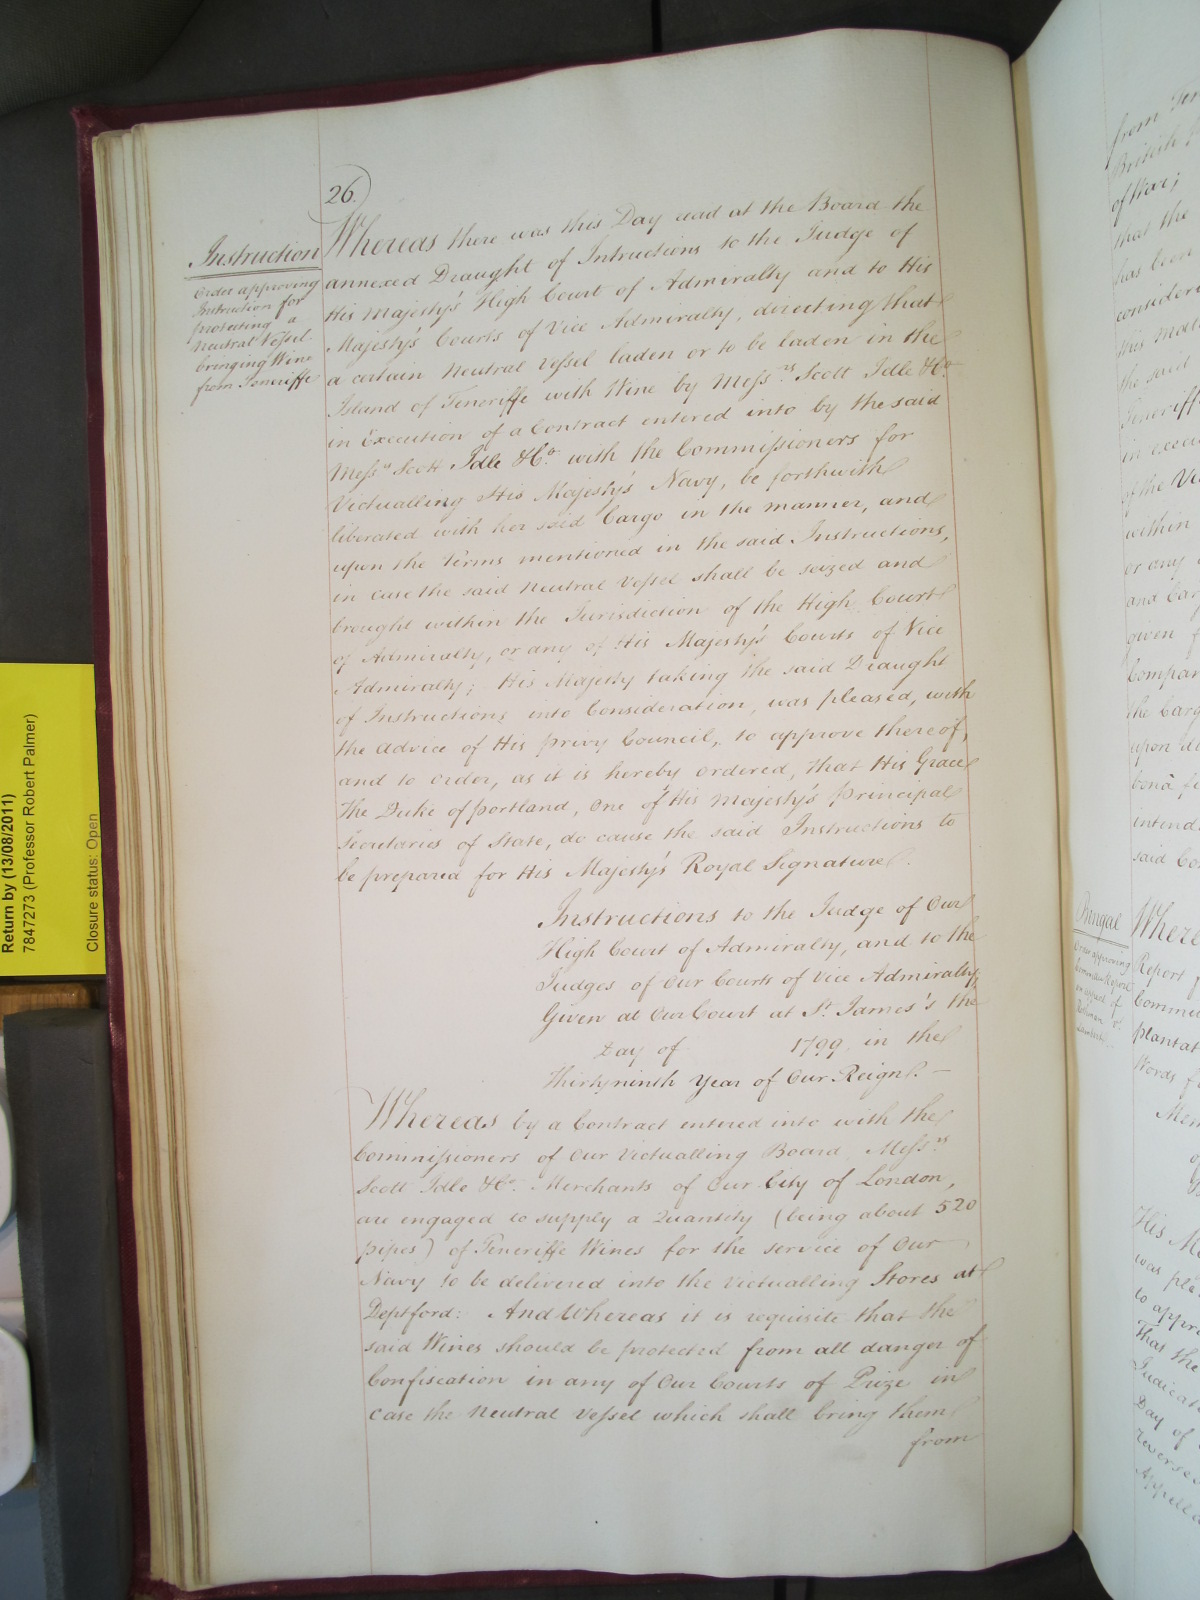 26.
Instruction
Order approving
Instruction for
protecting a
Neutral Vessel
bringing Wine
from Teneriffe
Whereas there was this Day read at the Board the
annexed Draught of Intructions to the Judge of
His Majesty's High Court of Admiralty and to His
Majesty's Courts of Vice Admiralty, directing that
a certain Neutral Vessel laden or to be laden in the
Island of Teneriffe with Wine by Mess.rs Scott Idle & Co.
in Execution of a Contract entered into by the said
Mess.rs Scott Idle & Co. with the Commissioners for
Victualling His Majesty's Navy, be forthwith
liberated with her said Cargo in the manner, and
upon the Terms mentioned in the said Instructions,
in case the said Neutral Vessel shall be seized and
brought within the Jurisdiction of the High Court
of Admiralty, or any of His Majesty's Courts of Vice
Admiralty; His Majesty taking the said Draught
of Instructions into Consideration, was pleased, with
the advice of His Privy Council, to approve thereof,
and to order, as it is hereby ordered, that His Grace
the Duke of Portland, One of His Majesty's Principal
Secretaries of State, do cause the said Instructions to
be prepared for His Majesty's Royal Signature.
Instructions to the Judge of Our
High Court of Admiralty, and to the
Judges of Our Courts of Vice Admiralty,
Given at Our Court at St. James's the
Day of 1799, in the
Thirty ninth Year of Our Reign. —
Whereas by a Contract entered into with the
Commissioners of Our Victualling Board, Mess.rs
Scott Idle & Co. Merchants of Our City of London,
are engaged to supply a Quantity (being about 520
pipes) of Teneriffe Wines for the service of Our
Navy to be delivered into the Victualling Stores at
Deptford: And Whereas it is requisite that the
said Wines should be protected from all danger of
Confiscation in any of Our Courts of Prize in
case the Neutral Vessel which shall bring them
from
Return by (13/08/2011)
7847273 (Professor Robert Palmer)
Closure status: Open
British
of War;
that the
has been
His
the said
in
of the
within
or any
and
given
the
upon
bonâ
intend
said
Bengal
Order approving
Where
Report
plantat
Words
His
was
to
That the
Day of